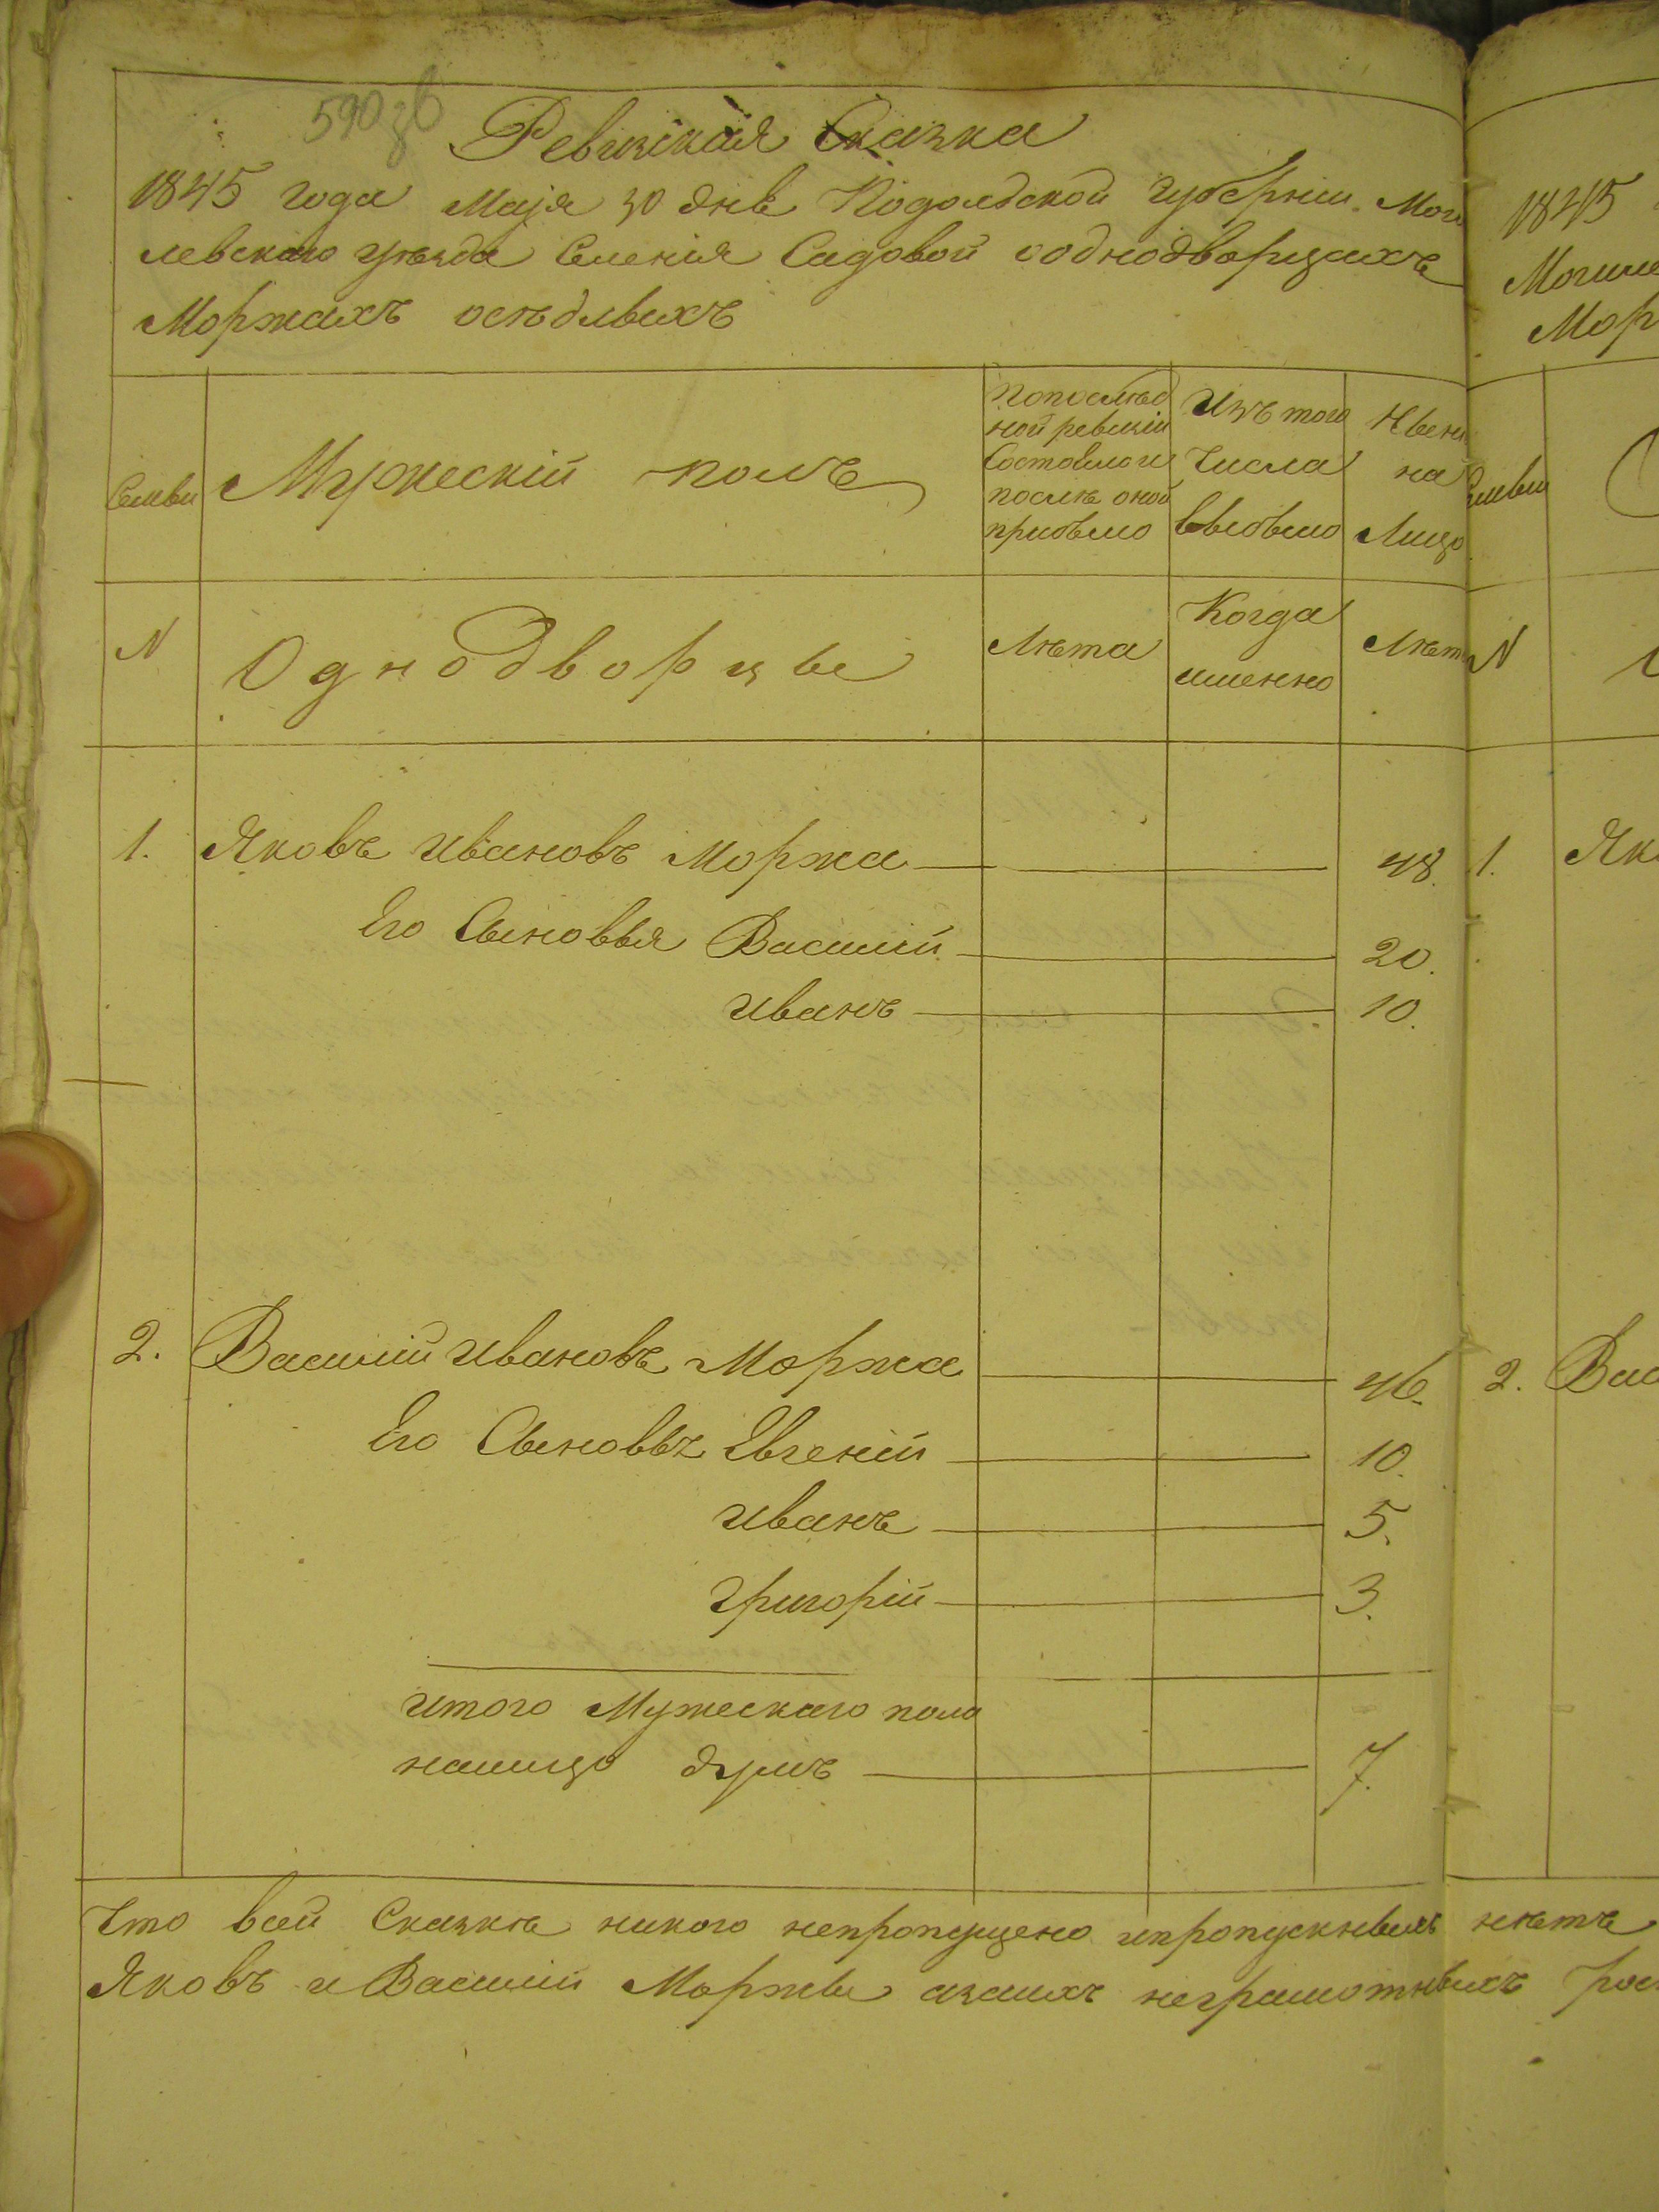 590зв
Ревизская Сказка
1845 года Маія 30 дня Подольской Губерніи Моги
левскаго уезда Селенія Садовой ооднодворцахъ
Моржахъ осѣдлыхъ
Семьи
Мужескій полъ
Попослѣд
ной ревизіи
Состоялои
послѣ оной
прибыло
Изъ того
Числа
выбыло
Ныне
на
Лицо
N
Однодворцы
Лѣта
Когда
именно
Лѣта
1. Яковъ Ивановъ Моржа 48.
Его Сыновья Василій 20.
Иванъ 10.
2. Василій Ивановъ Моржа 46.
Его Сыновья Евгеній 10.
Иванъ 5.
Григорій 3.
Итого Мужескаго пола
налицо душъ 7.
Что всей Сказке никого непропущено ипропускныхъ нѣтъ
Яковъ и Василій Моржи азаихъ неграмотныхъ
1845
Могиле
Мор
Семьи
N
1. Як
2. Вас